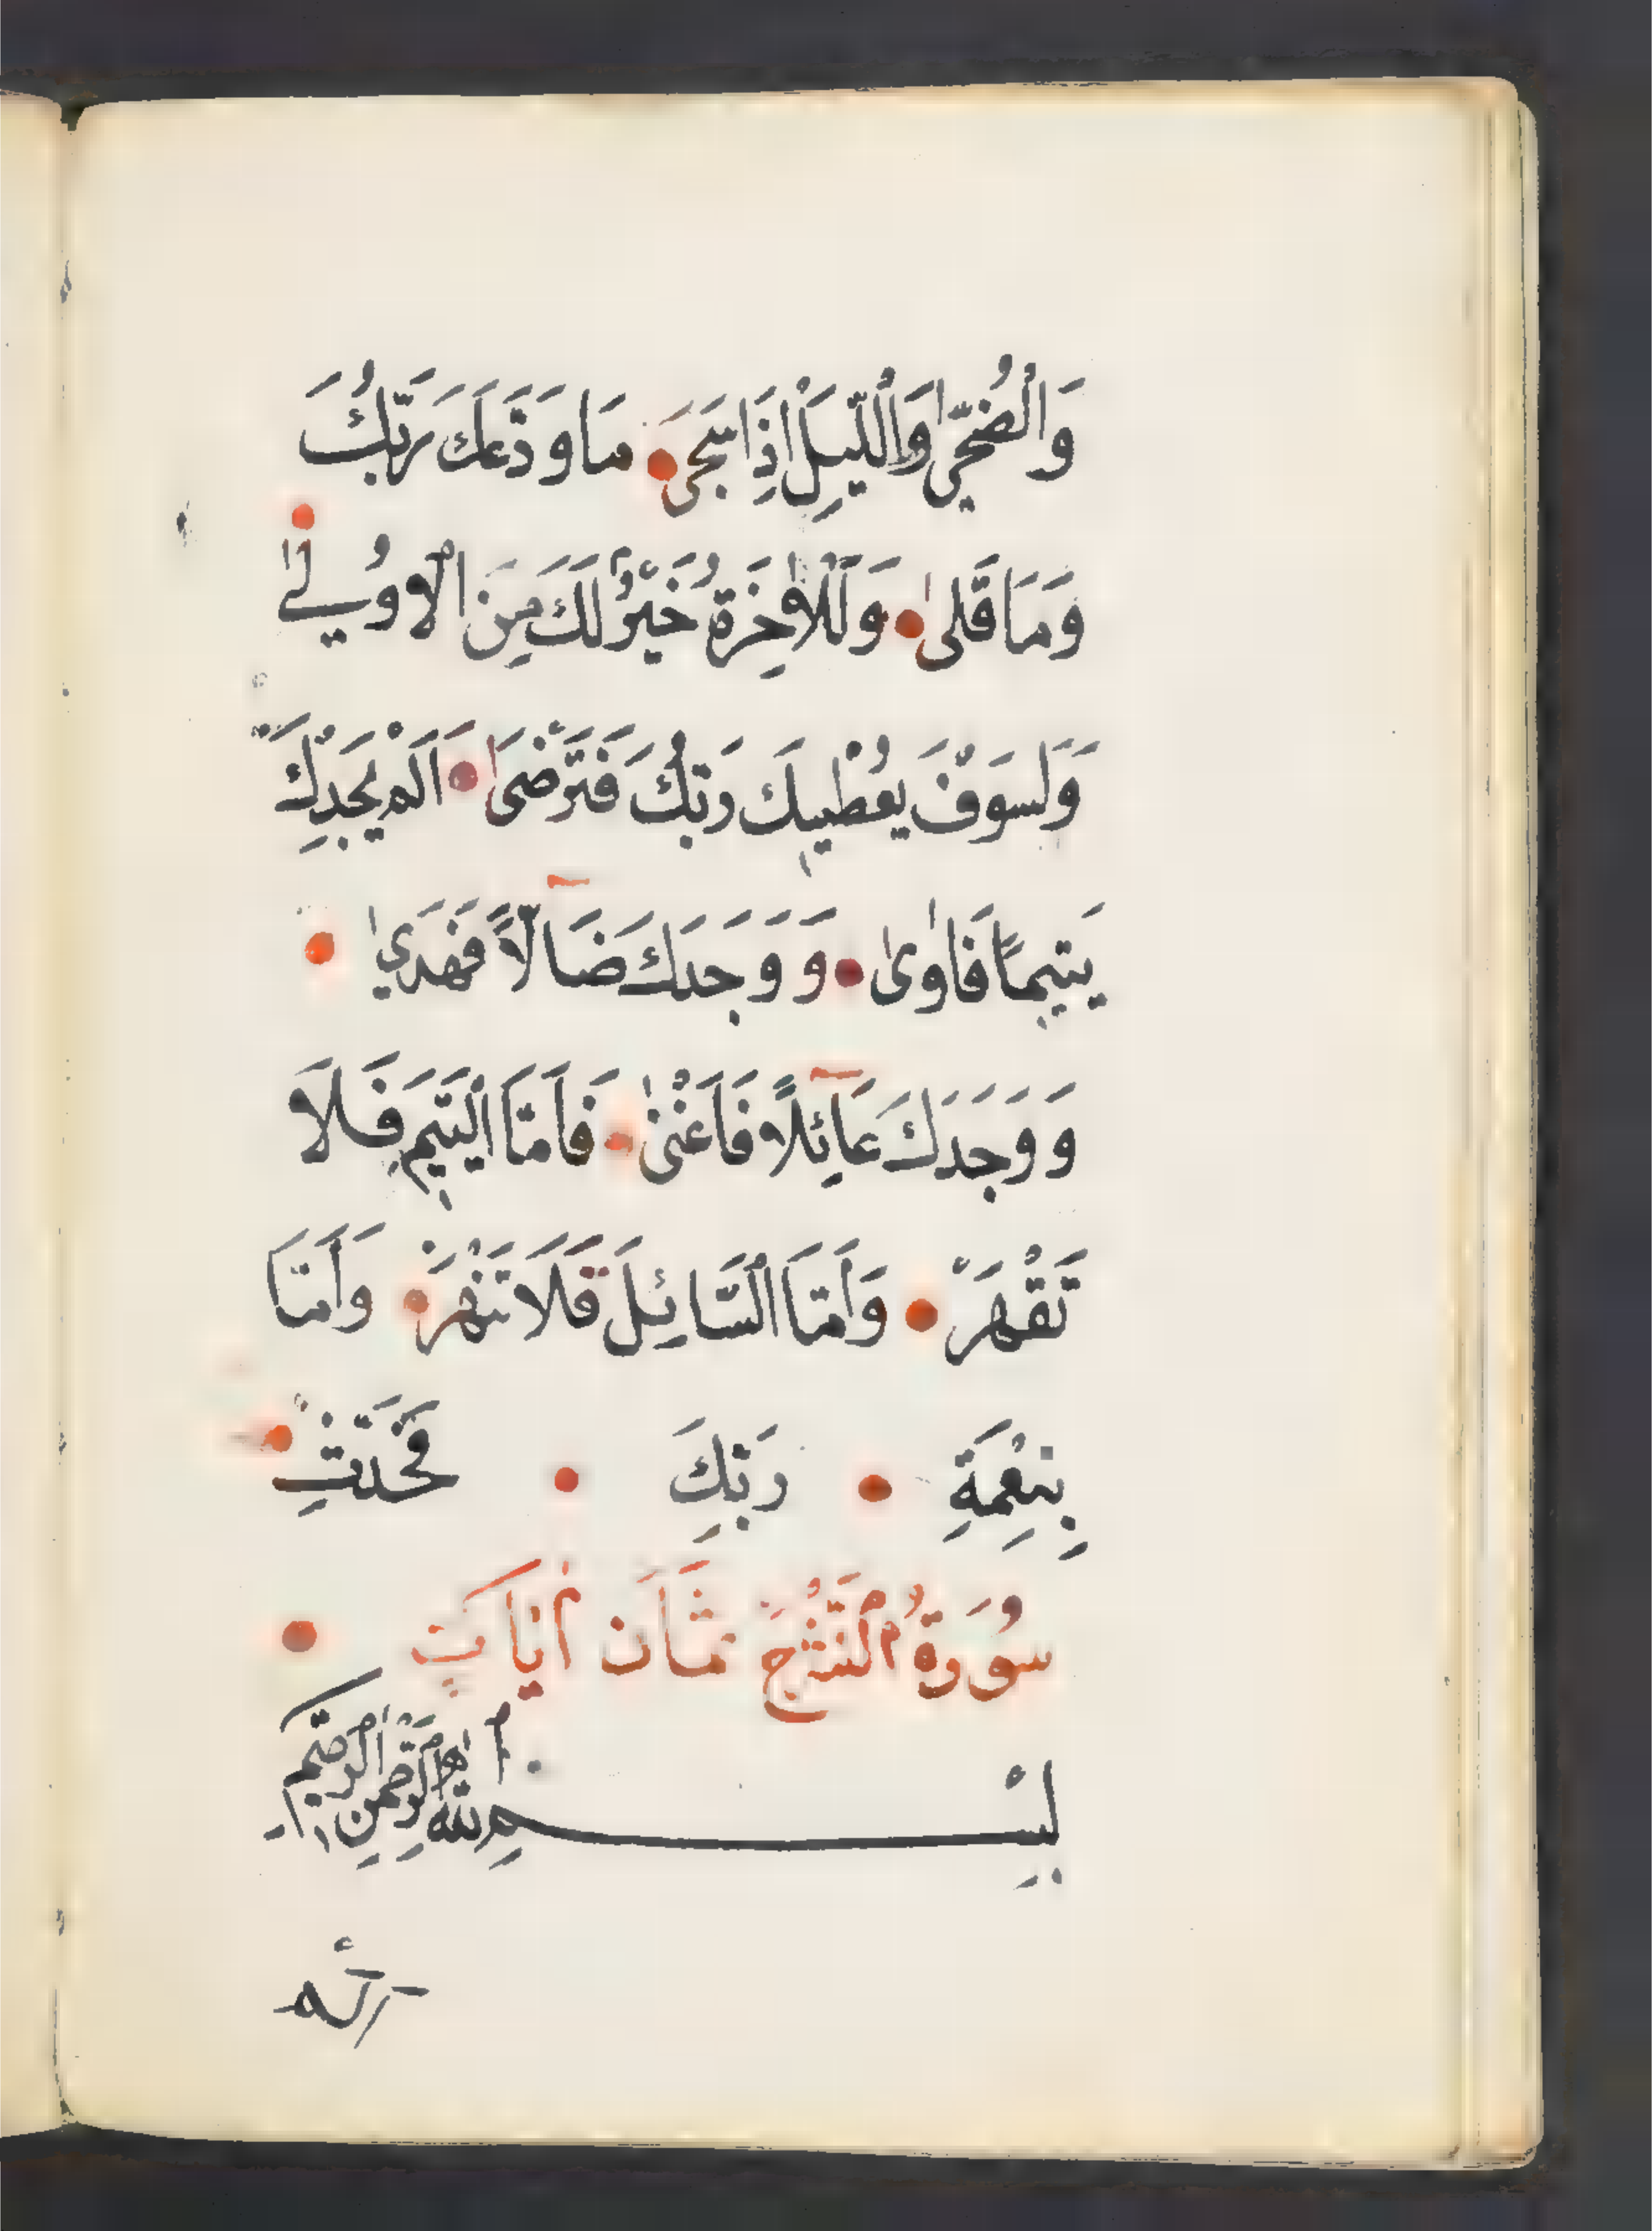 وَالْضُحٰى وَالْلَّيْلِ اِذَا سَجَىَ مَا وَدَّعَكَ رَبُّكَ
وَمَا قَلىٰ وَلَلْاٰخِرَةُ خَيْرٌ لَكَ مِنَ الْاُولىٰ
وَلَسَوْفَ يُعْطِيكَ رَبُّكَ فَتَرْضىٰ اَلَمْ يَجِدْكَ
يَتِيمًا فَاٰوىٰ وَ وَجَدَكَ ضَآلًّا فَهَدىٰ
وَ وَجَدَكَ عَآئِلًا فَاَغْنىٰ فَاَمَّا الْيَتِيمَ فَلَا
تَقْهَرْ وَاَمَّا السَّائِلَ فَلَا تَنْهَرْ وَاَمَّا
بِنِعْمَةِ رَبِّكَ فَحَدِّثْ
سُورَةُ ثَمَان اٰيَات
بِسْمِ اللّٰهِ الرَّحْمٰنِ الرَّحِيمِ